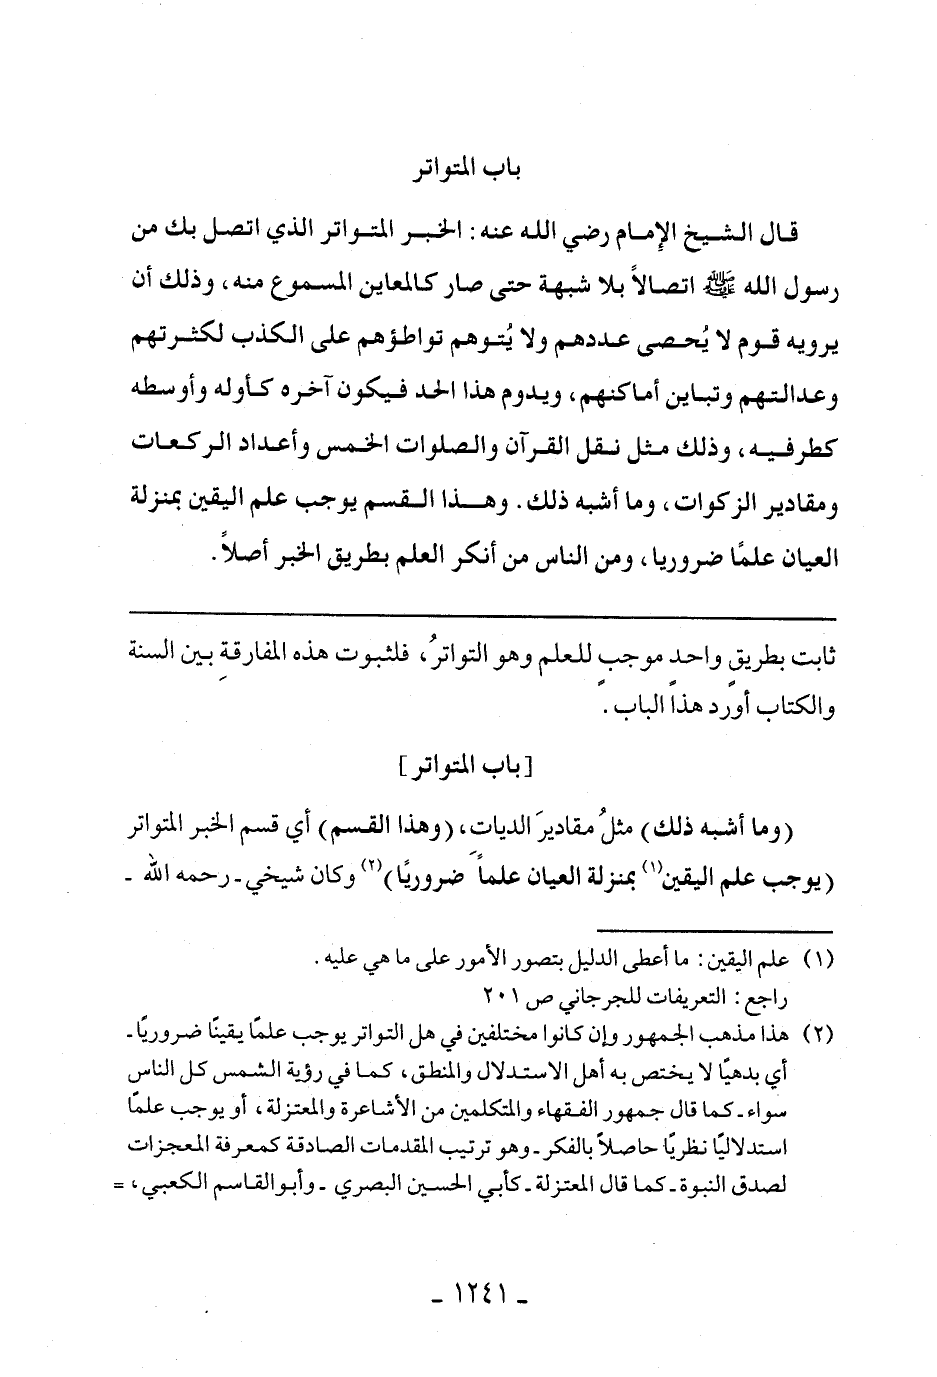 باب المتواتر
قال الشيخ الإمام رضي الله عنه : الخبر المتواتر الذي اتصل بك من
رسول الله ﷺ اتصالاً بلا شبهة حتى صار كالمعاين المسموع منه ، وذلك أن
يرويه قوم لا يُحصى عددهم ولا يُتوهم تواطؤهم على الكذب لكثرتهم
وعدالتهم وتباين أماكنهم ، ويدوم هذا الحد فيكون آخره كأوله وأوسطه
كطرفيه ، وذلك مثل نقل القرآن والصلوات الخمس وأعداد الركعات
ومقادير الزكوات ، وما أشبه ذلك . وهذا القسم يوجب علم اليقين بمنزلة
العيان علمًا ضروريا ، ومن الناس من أنكر العلم بطريق الخبر أصلاً .
ثابت بطريقٍ واحدٍ موجبٍ للعلم وهو التواترُ ، فلثبوت هذه المفارقة بين السنة
والكتاب أورد هذا الباب .
[ باب المتواتر ]
(وما أشبه ذلك) مثلُ مقاديرِ الديات ، (وهذا القسم) أي قسم الخبر المتواتر
(يوجب علم اليقين(١) بمنزلة العيان علماً ضروريًا)(٢) وكان شيخي ـ رحمه الله ـ
(١) علم اليقين : ما أعطى الدليل بتصور الأمور على ما هي عليه .
راجع : التعريفات للجرجاني ص ٢٠١
(٢) هذا مذهب الجمهور وإن كانوا مختلفين في هل التواتر يوجب علمًا يقينًا ضروريًا ـ
أي بدهيًا لا يختص به أهل الاستدلال والمنطق ، كما في رؤية الشمس كل الناس
سواء ـ كما قال جمهور الفقهاء والمتكلمين من الأشاعرة والمعتزلة ، أو يوجب علمًا
استدلاليًا نظريًا حاصلاً بالفكر ـ وهو ترتيب المقدمات الصادقة كمعرفة المعجزات
لصدق النبوة ـ كما قال المعتزلة ـ كأبي الحسين البصري ـ وأبو القاسم الكعبي ، =
ـ ١٢٤١ ـ